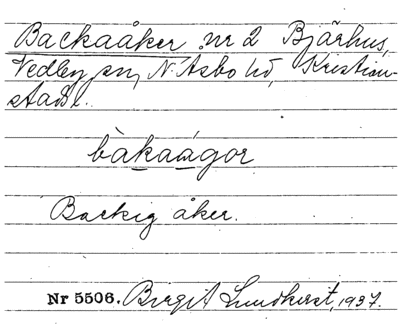 Backaåker nr 2 Bjärhus,
Vedby sn, N. Åsbo hd, Kristian-
stads l.
bàkaágor
Backig åker.
Nr 5506. Birgit Lundkvist, 1937.